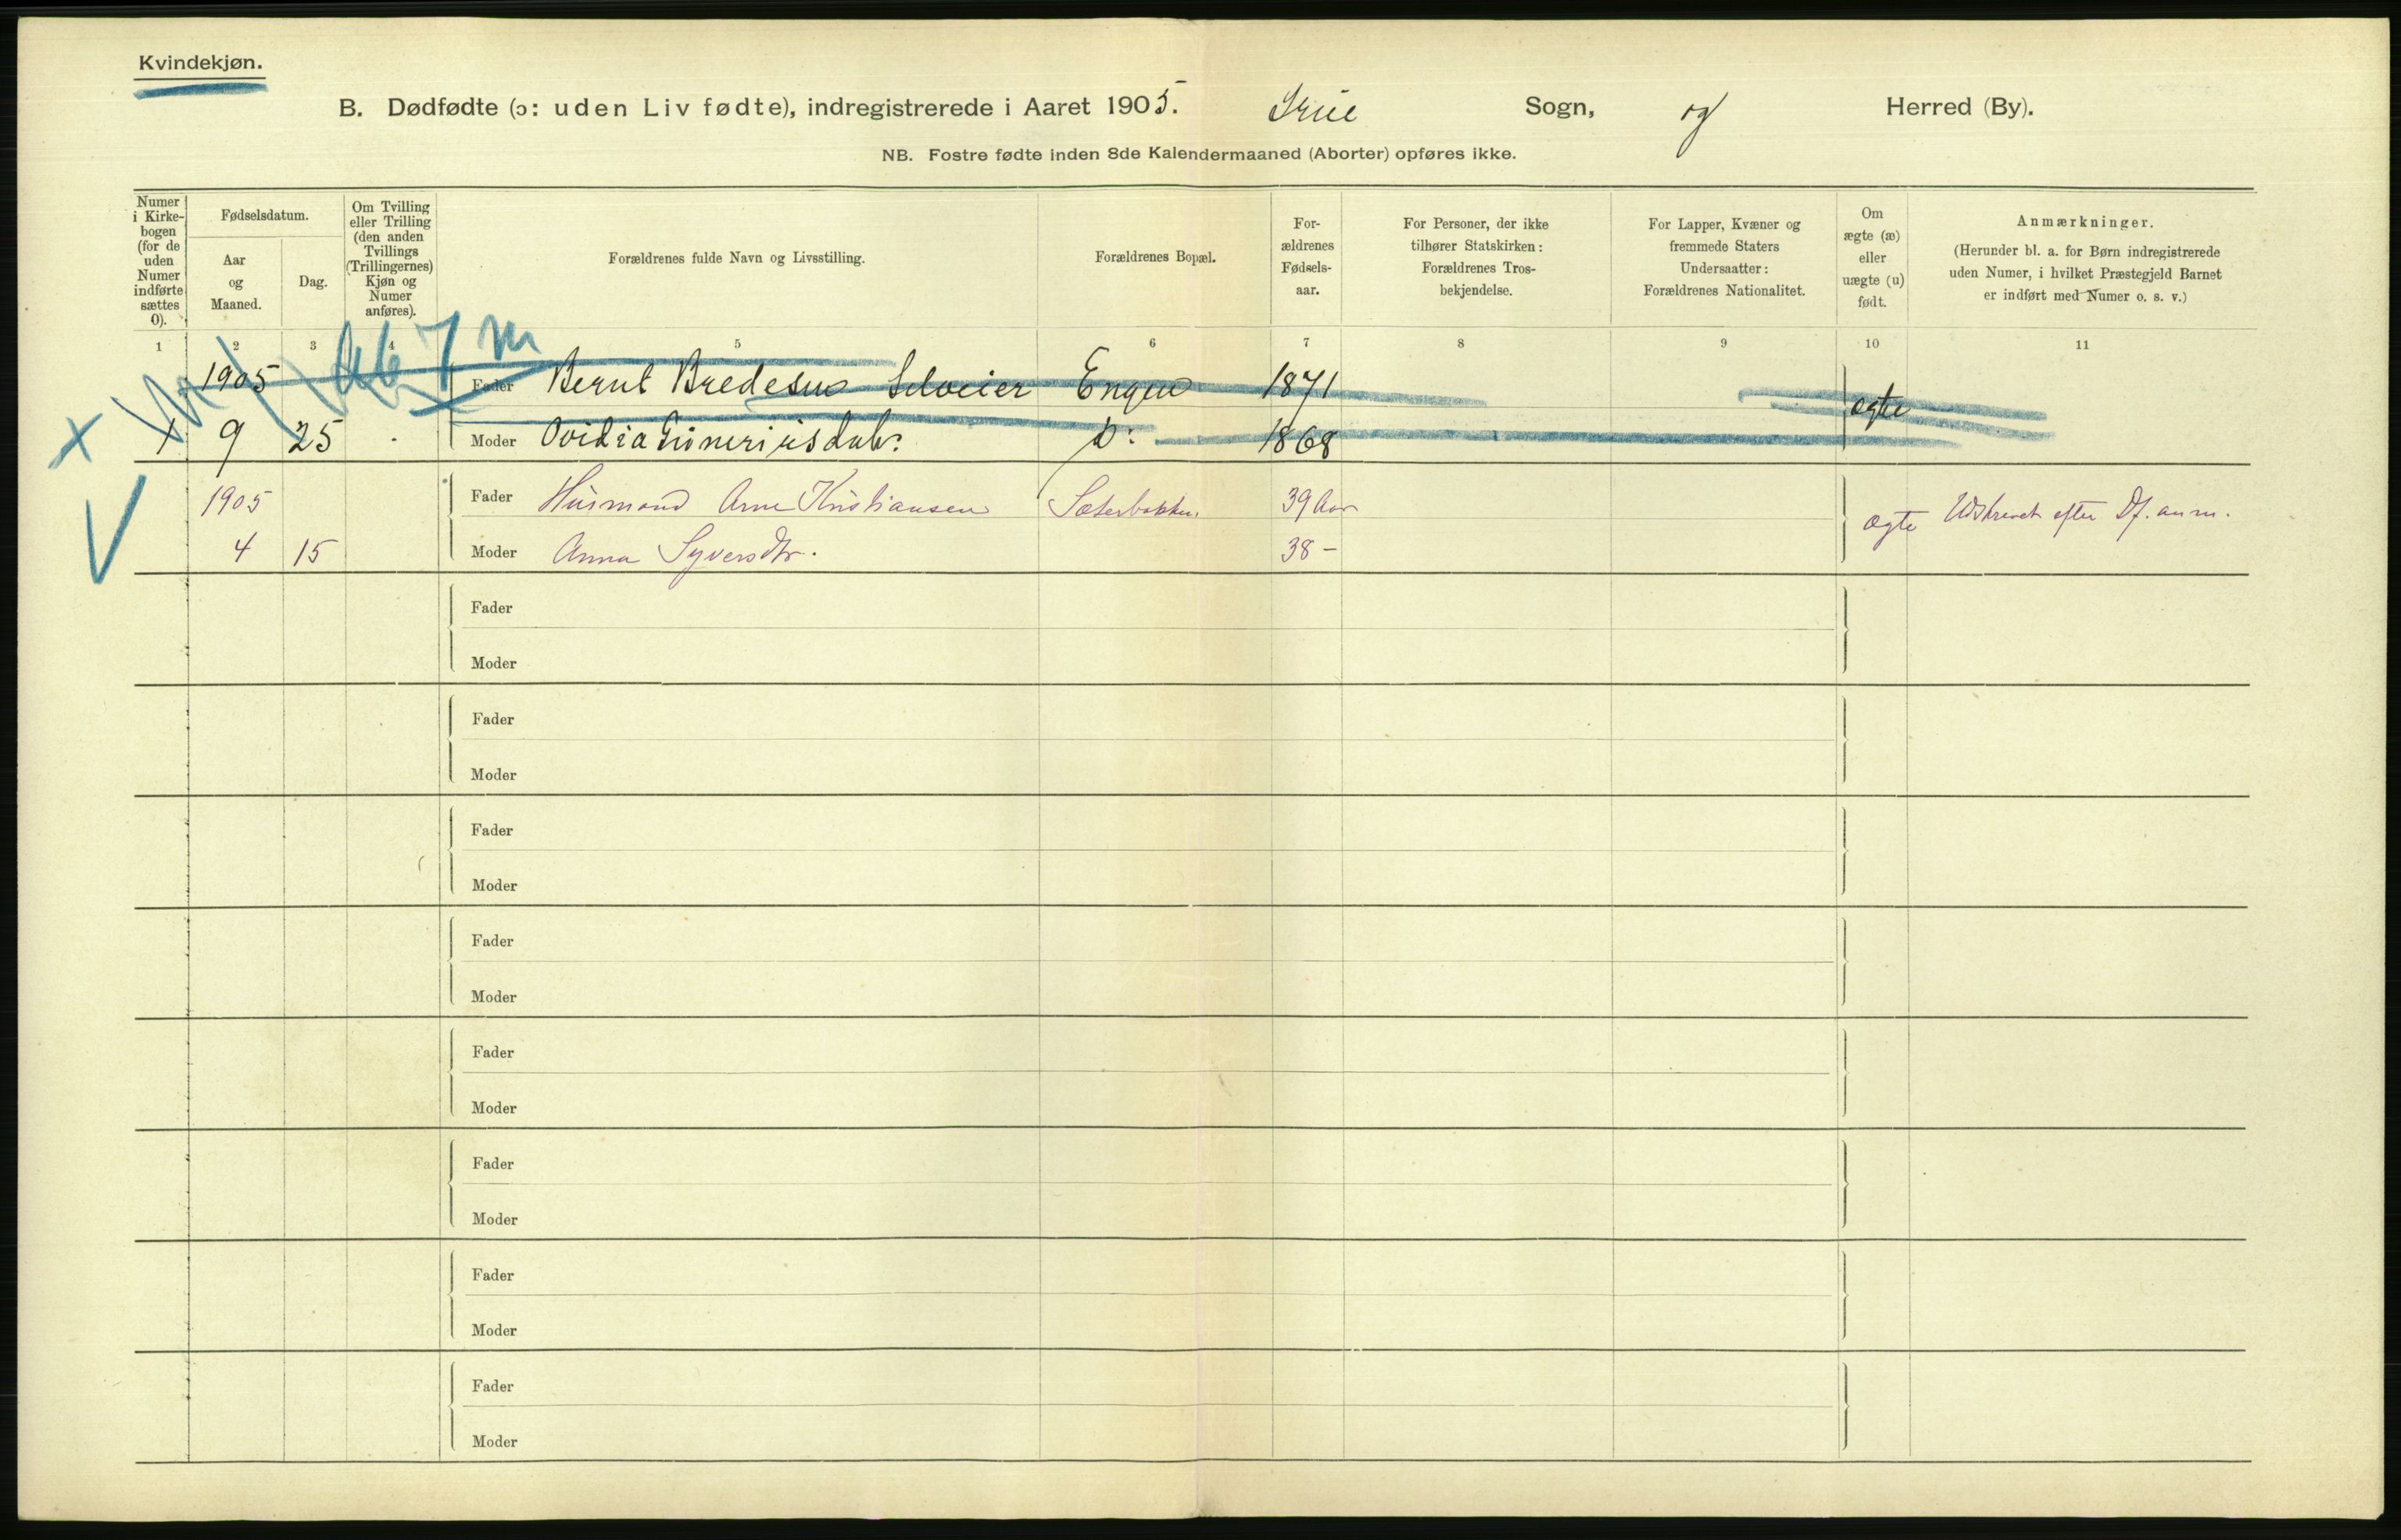 Kvindekjøn.
B. Dødfødte (ɔ: uden Liv fødte), indregistrerede i Aaret 1905. Grue Sogn, og Herred (By).
NB. Fostre fødte inden 8de Kalendermaaned (Aborter) opføres ikke.
Numer i Kirkebogen (for de uden Numer indførte sættes 0).
Fødselsdatum.
Aar og Maaned.
Dag.
Om Tvilling eller Trilling (den anden Tvillings (Trillingernes) Kjøn og Numer anføres).
Forældrenes fulde Navn og Livsstilling.
Forældrenes Bopæl.
Forældrenes Fødselsaar.
For Personer, der ikke tilhører Statskirken: Forældrenes Trosbekjendelse.
For Lapper, Kvæner og fremmede Staters Undersaatter: Forældrenes Nationalitet.
Om ægte (æ) eller uægte (u) født.
Anmærkninger.
(Herunder bl. a. for Børn indregistrerede uden Numer, i hvilket Præstegjeld Barnet er indført med Numer o. s. v.)
1 2 3 4 5 6 7 8 9 10 11
7 m
1905 Fader Bernt Bredesen Selveier Engen 1871 ægte
x 1 9 25 . Moder Ovidia Guneriusdatr. Do: 1868
1905 Fader Husmand Arne Kristiansen Sæterbakken 39 Aar ægte Udskrevet efter Df. anm.
V 4 15 Moder Anna Syversdtr. 38 -
Fader
Moder
Fader
Moder
Fader
Moder
Fader
Moder
Fader
Moder
Fader
Moder
Fader
Moder
Fader
Moder